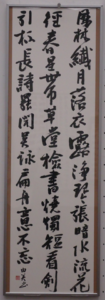 風林纖月落衣露淨琴張暗水流花
徑春星帶草堂檢書燒燭短看劍
引杯長詩罷聞吳詠扁舟意不忘